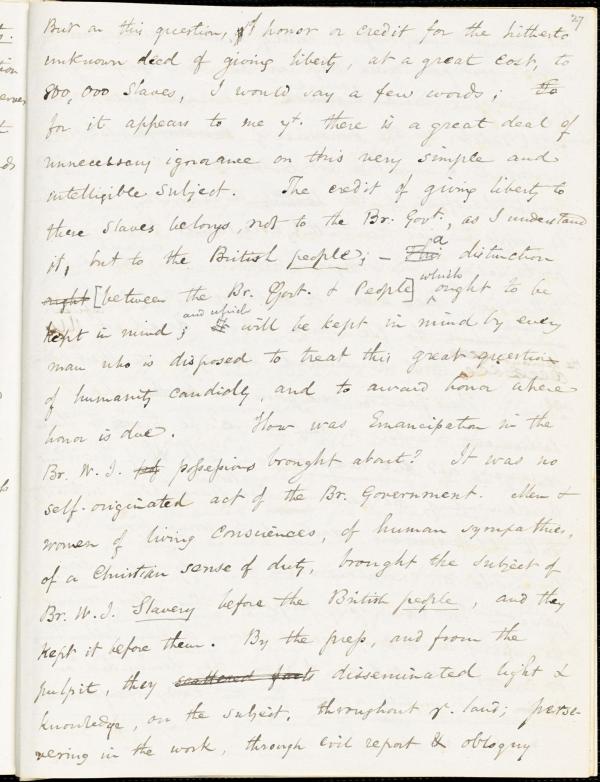 27
But on this question, of honor or credit for the hitherto
unknown deed of giving liberty, at a great cost, to
800,000 Slaves, I would say a few words; To
for it appears to me yt. there is a great deal of
unnecessary ignorance on this very simple and
intelligible subject. The credit of giving liberty to
these Slaves belongs, not to the Br. Govt., as I understand
it, but to the British people; – This a distinction
ought [between the Br. Govt. & People] which ought to be
kept in mind; It and which will be kept in mind by every
man who is disposed to treat this great question
of humanity candidly, and to award honor where
honor is due. How was Emancipation in the
Br. W. I. possessions brought about? It was no
self-originated act of the Br. Government. Men &
women of living consciences, of human sympathies,
of a Christian sense of duty, brought the subject of
Br. W. I. Slavery before the British people, and they
kept it before them. By the press, and from the
pulpit, they scattered facts disseminated light &
knowledge, on the subject, throughout ye. land; perse-
vering in the work, through evil report & obloquy